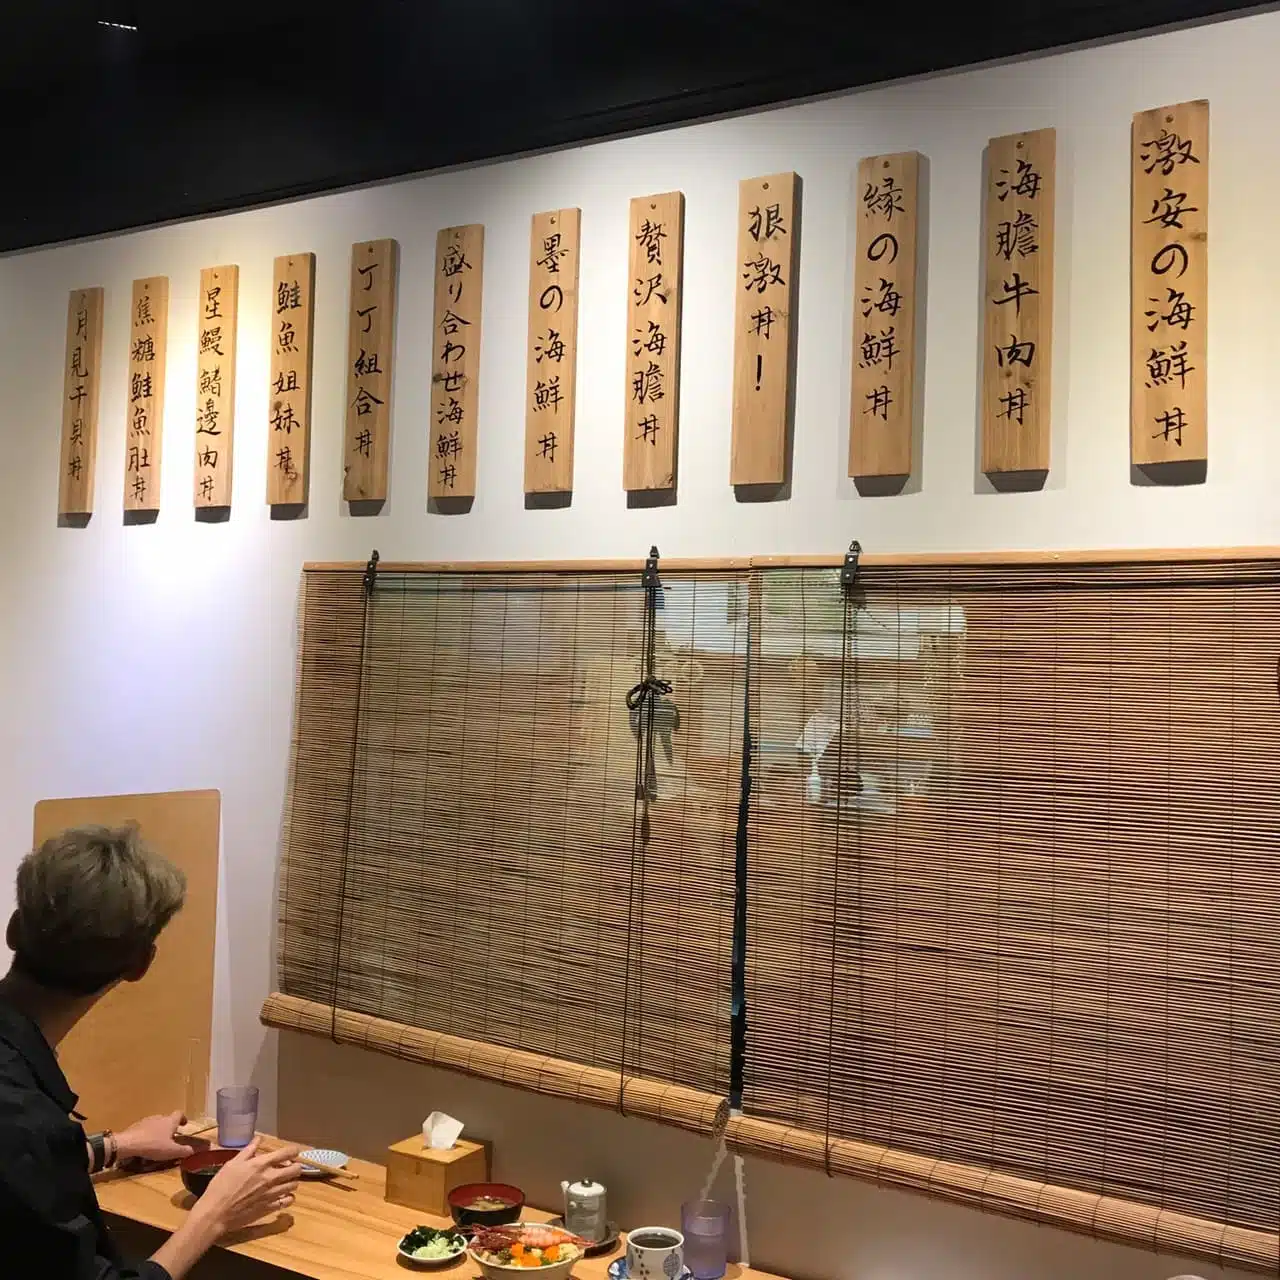 激安の海鮮丼
海膽牛肉丼
縁の海鮮丼
狠激丼！
贅沢海膽丼
墨の海鮮丼
盛り合わせ海鮮丼
丁丁組合丼
鮭魚姐妹丼
星鰻鰭邊肉丼
焦糖鮭魚肚丼
月見干貝丼